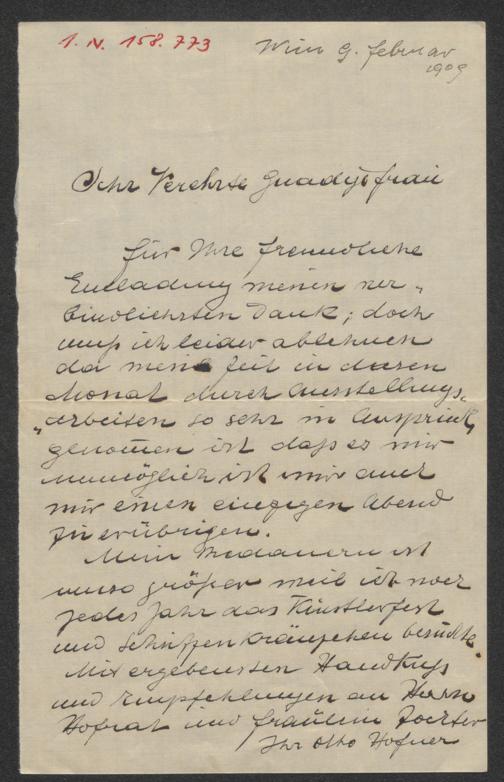 I. N. 158.773
Wien 9. Februar
1909
Sehr Verehrte Gnädigste Frau
für Ihre freundliche
Einladung meinen ver-
bindlichsten Dank; doch
muß ich leider ablehnen
da meine Zeit in diesem
Monat durch Ausstellungs-
"arbeiten so sehr in Anspruch
genom̅en ist daß es mir
unmöglich ist mir auch
nur einen einzigen Abend
zu erübrigen.
Mein Bedauern ist
umso größer weil ich noch
jedes Jahr das Künstlerfest
und Schützenkränzchen besuchte.
Mit ergebensten Handkuß
und Empfehlungen an Herrn
Hofrat und Fräulein Tochter
Ihr Otto Hofner